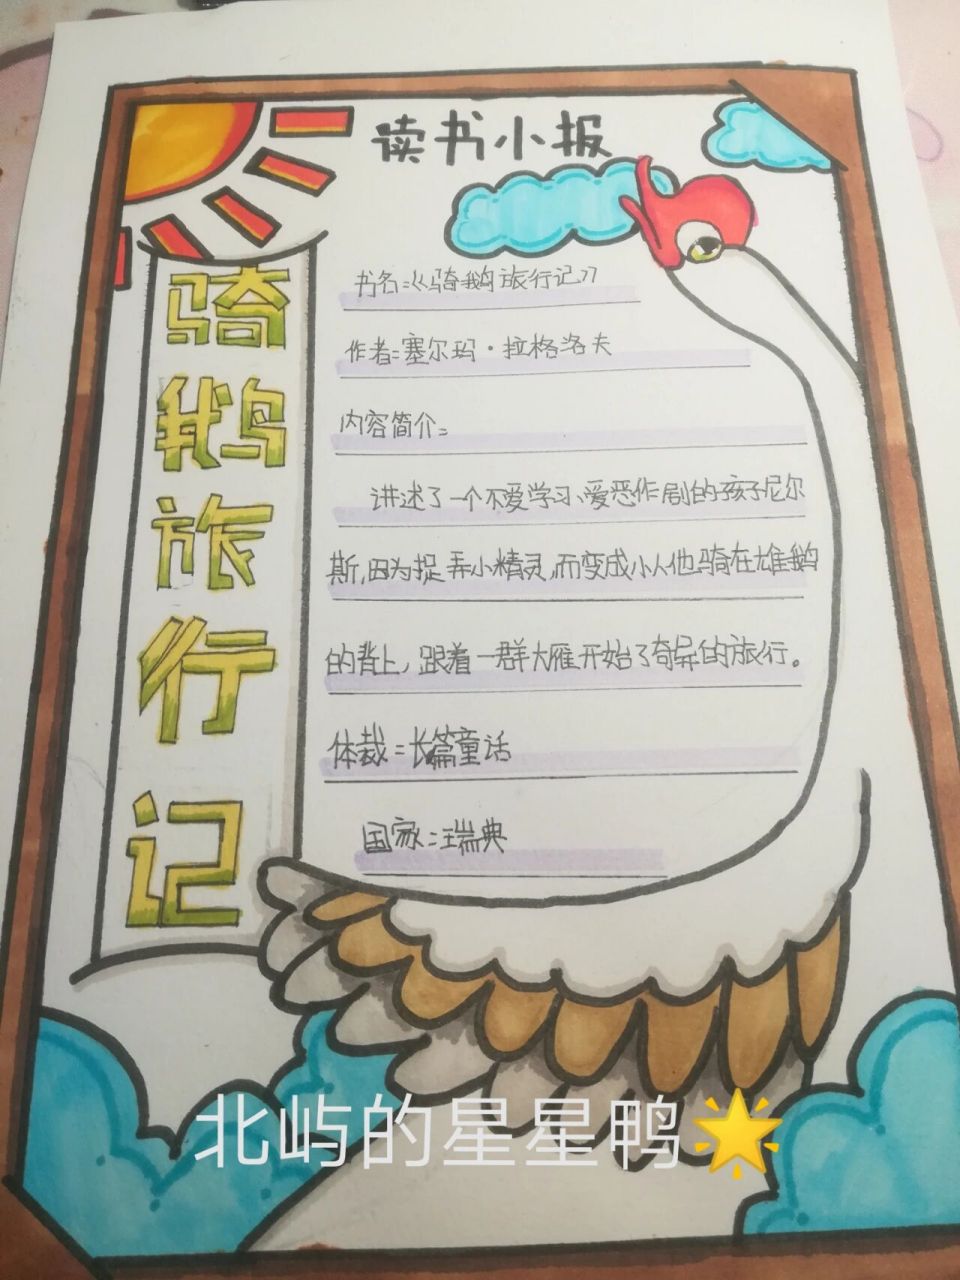 读书小报
骑鹅旅行记
书名:《骑鹅旅行记》
作者:塞尔玛·拉格洛夫
内容简介:
讲述了一个不爱学习、爱恶作剧的孩子尼尔
斯,因为捉弄小精灵,而变成小人他骑在雄鹅
的背上,跟着一群大雁开始了奇异的旅行。
体裁:长篇童话
国家:瑞典
北屿的星星鸭🌟